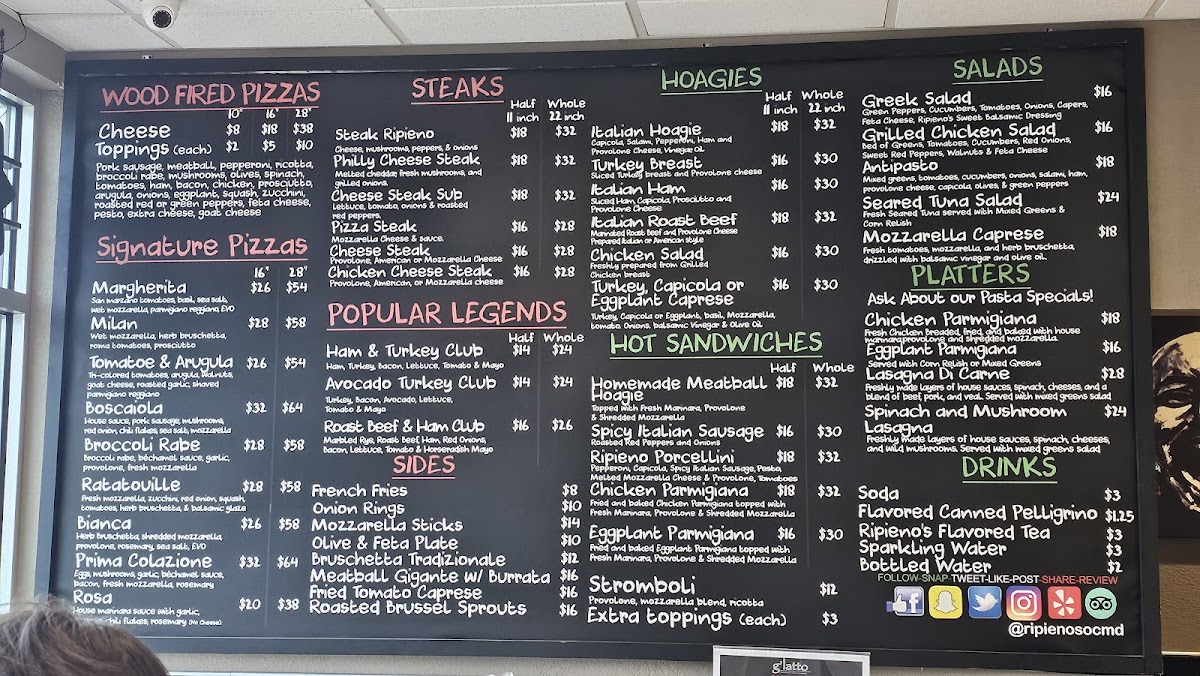 WOOD FIRED PIZZAS
10" 16" 28"
Cheese $8 $18 $38
Toppings (each) $2 $5 $10
Pork sausage, meatball, pepperoni, ricotta,
broccoli rabe, mushrooms, olives, spinach,
tomatoes, ham, bacon, chicken, prosciutto,
arugula, onions, eggplant, squash, zucchini,
roasted red or green peppers, feta cheese,
pesto, extra cheese, goat cheese
Signature Pizzas
16" 28"
Margherita $26 $54
San marzano tomatoes, basil, sea salt,
wet mozzarella, parmigiano reggiano, EVO
Milan $28 $58
Wet mozzarella, herb bruschetta,
roma tomatoes, prosciutto
Tomatoe & Arugula $26 $54
Tri-colored tomatoes, arugula, walnuts,
goat cheese, roasted garlic, shaved
parmigiano reggiano
Boscaiola $32 $64
House sauce, pork sausage, mushrooms,
red onion, chili flakes, sea salt, mozzarella
Broccoli Rabe $28 $58
Broccoli rabe, béchamel sauce, garlic,
provolone, fresh mozzarella
Ratatouille $28 $58
Fresh mozzarella, zucchini, red onion, squash,
tomatoes, herb bruschetta, & balsamic glaze
Bianca $26 $58
Herb bruschetta, shredded mozzarella,
provolone, rosemary, sea salt, EVO
Prima Colazione $32 $64
Eggs, mushrooms, garlic, béchamel sauce,
bacon, fresh mozzarella, rosemary
Rosa $20 $38
House marinara sauce with garlic,
chili flakes, rosemary (No Cheese)
STEAKS
Half Whole
11 inch 22 inch
Steak Ripieno $18 $32
Cheese, mushrooms, peppers, & onions
Philly Cheese Steak $18 $32
Melted cheddar, fresh mushrooms, and
grilled onions.
Cheese Steak Sub $18 $32
Lettuce, tomato, onions & roasted
red peppers.
Pizza Steak $16 $28
Mozzarella Cheese & sauce.
Cheese Steak $16 $28
Provolone, American or Mozzarella Cheese
Chicken Cheese Steak $16 $28
Provolone, American, or Mozzarella cheese
POPULAR LEGENDS
Half Whole
Ham & Turkey Club $14 $24
Ham, Turkey, Bacon, Lettuce, Tomato & Mayo
Avocado Turkey Club $14 $24
Turkey, Bacon, Avocado, Lettuce,
Tomato & Mayo
Roast Beef & Ham Club $16 $26
Marbled Rye, Roast Beef, Ham, Red Onions,
Bacon, Lettuce, Tomato & Horseradish Mayo
SIDES
French Fries $8
Onion Rings $10
Mozzarella Sticks $14
Olive & Feta Plate $10
Bruschetta Tradizionale $12
Meatball Gigante w/ Burrata $16
Fried Tomato Caprese $16
Roasted Brussel Sprouts $16
HOAGIES
Half Whole
11 inch 22 inch
Italian Hoagie $18 $32
Capicola, Salami, Pepperoni, Ham and
Provolone Cheese, Vinegar, Oil
Turkey Breast $16 $30
Sliced Turkey breast and Provolone cheese
Italian Ham $16 $30
Sliced Ham, Capicola, Prosciutto and
Provolone Cheese
Italian Roast Beef $18 $32
Marinated Roast Beef and Provolone Cheese
Prepared Italian or American style
Chicken Salad $16 $30
Freshly prepared from Grilled
Chicken breast
Turkey, Capicola or $16 $30
Eggplant Caprese
Turkey, Capicola or Eggplant, basil, Mozzarella,
tomato, Onions, balsamic Vinegar & Olive Oil
HOT SANDWICHES
Half Whole
Homemade Meatball $18 $32
Hoagie
Topped with Fresh Marinara, Provolone
& Shredded Mozzarella
Spicy Italian Sausage $16 $30
Roasted Red Peppers and Onions
Ripieno Porcellini $18 $32
Pepperoni, Capicola, Spicy Italian Sausage, Pesto,
Melted Mozzarella Cheese & Provolone, Tomatoes
Chicken Parmigiana $18 $32
Fried and baked Chicken Parmigiana topped with
Fresh Marinara, Provolone & Shredded Mozzarella
Eggplant Parmigiana $16 $30
Fried and baked Eggplant Parmigiana topped with
Fresh Marinara, Provolone & Shredded Mozzarella
Stromboli $12
Provolone, mozzarella blend, ricotta
Extra toppings (each) $3
SALADS
Greek Salad $16
Green Peppers, Cucumbers, Tomatoes, Onions, Capers,
Feta Cheese, Ripieno's Sweet Balsamic Dressing
Grilled Chicken Salad $16
Bed of Greens, Tomatoes, Cucumbers, Red Onions,
Sweet Red Peppers, Walnuts & Feta Cheese
Antipasto $18
Mixed greens, tomatoes, cucumbers, onions, salami, ham,
provolone cheese, capicola, olives, & green peppers
Seared Tuna Salad $24
Fresh Seared Tuna served with Mixed Greens &
Corn Relish
Mozzarella Caprese $18
Fresh tomatoes, mozzarella, and herb bruschetta,
drizzled with balsamic vinegar and olive oil.
PLATTERS
Ask About our Pasta Specials!
Chicken Parmigiana $18
Fresh Chicken breaded, fried, and baked with house
marinara,provolone and shredded mozzarella
Eggplant Parmigiana $16
Served with Corn Relish or Mixed Greens
Lasagna Di Carne $28
Freshly made layers of house sauces, spinach, cheeses, and a
blend of beef, pork, and veal. Served with mixed greens salad
Spinach and Mushroom $24
Lasagna
Freshly made layers of house sauces, spinach, cheeses,
and wild mushrooms. Served with mixed greens salad
DRINKS
Soda $3
Flavored Canned Pelligrino $1.25
Ripieno's Flavored Tea $3
Sparkling Water $3
Bottled Water $2
FOLLOW-SNAP-TWEET-LIKE-POST-SHARE-REVIEW
@ripienosocmd
g'latto